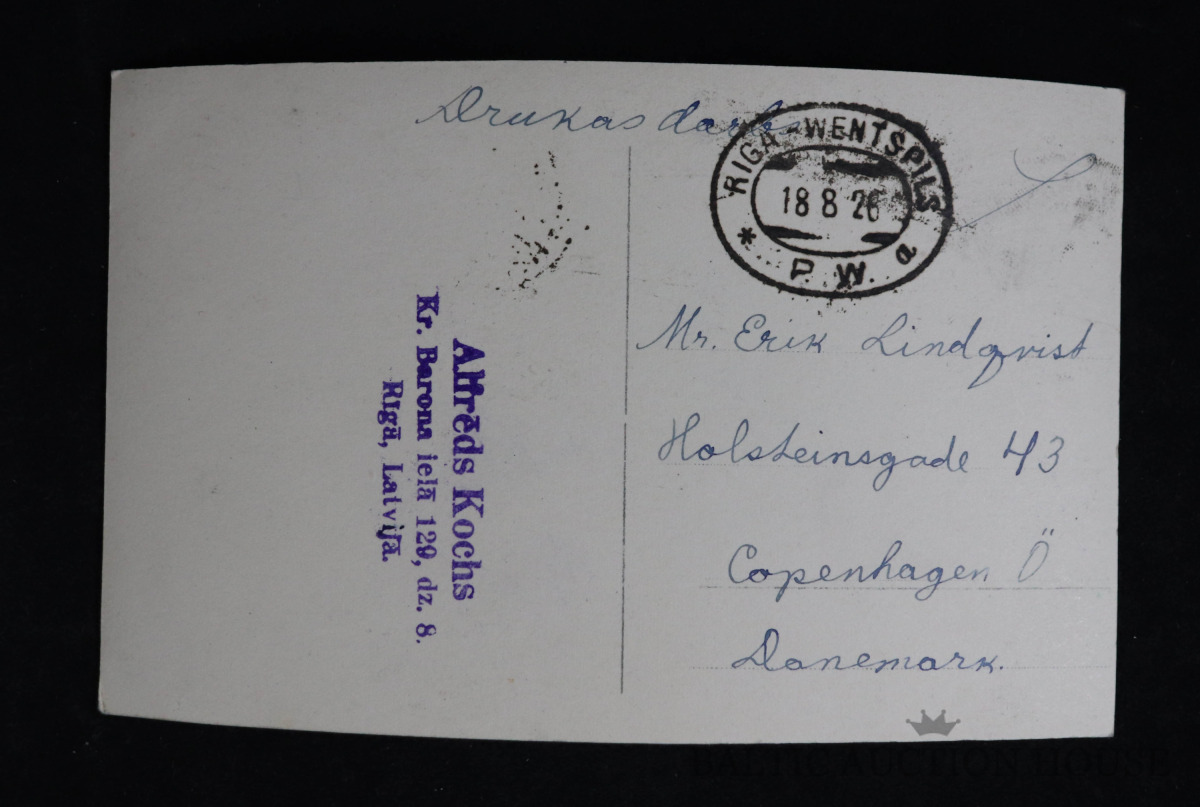 Drukas darbs
RIGA-WENTSPILS
18 8 26
* P.W. a
Mr. Erik Lindqvist
Holsteinsgade 43
Copenhagen Ö
Danemark.
Alfrēds Kochs
Kr. Barona ielā 129, dz. 8.
Rīgā, Latvijā.
BALTIC AUCTION HOUSE